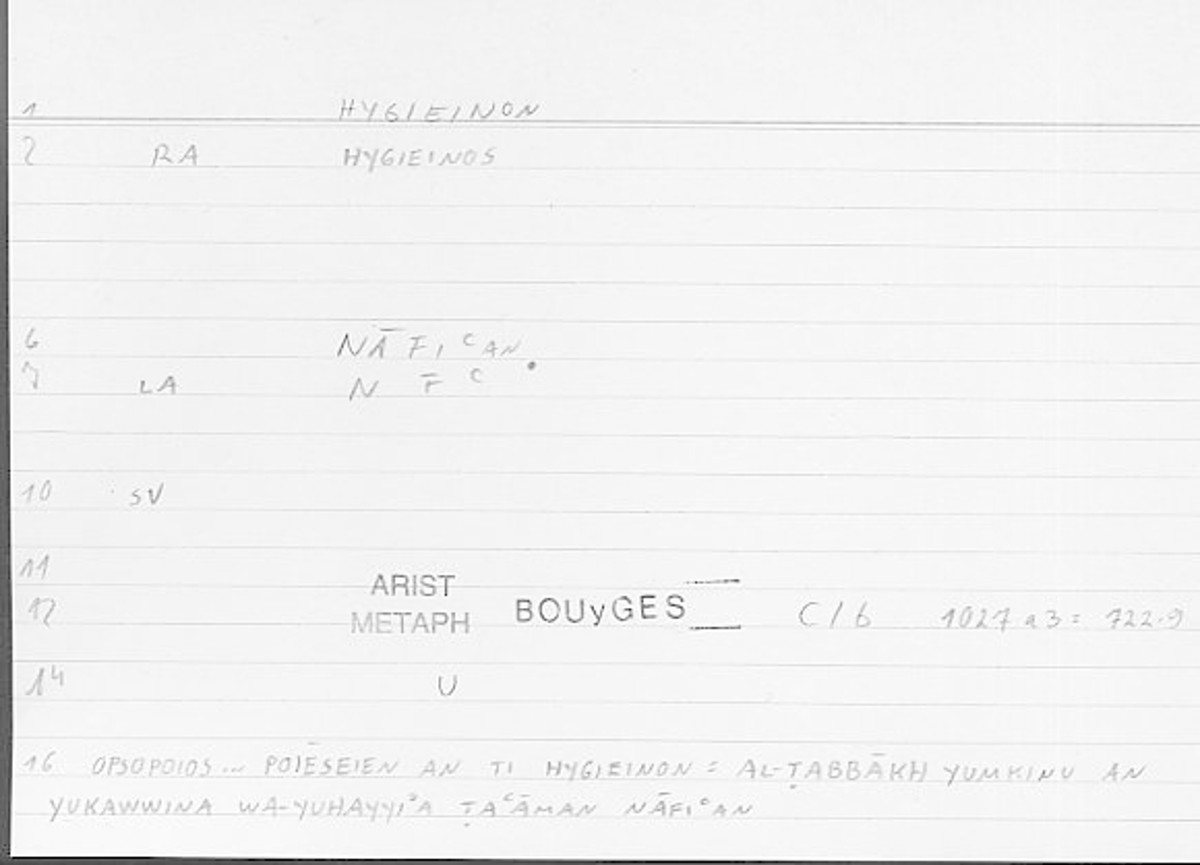 1 HYGIEINON
2 RA HYGIEINOS
6 NĀFIᶜAN.
7 LA N F ᶜ
10 SV
11 ARIST
12 METAPH BOUyGES C/6 1027a3 = 722.9
14 U
16 OPSOPOIOS... POIĒSEIEN AN TI HYGIEINON = AL-ṬABBĀKH YUMKINU AN
YUKAWWINA WA-YUHAYYIʾA ṬAᶜĀMAN NĀFIᶜAN